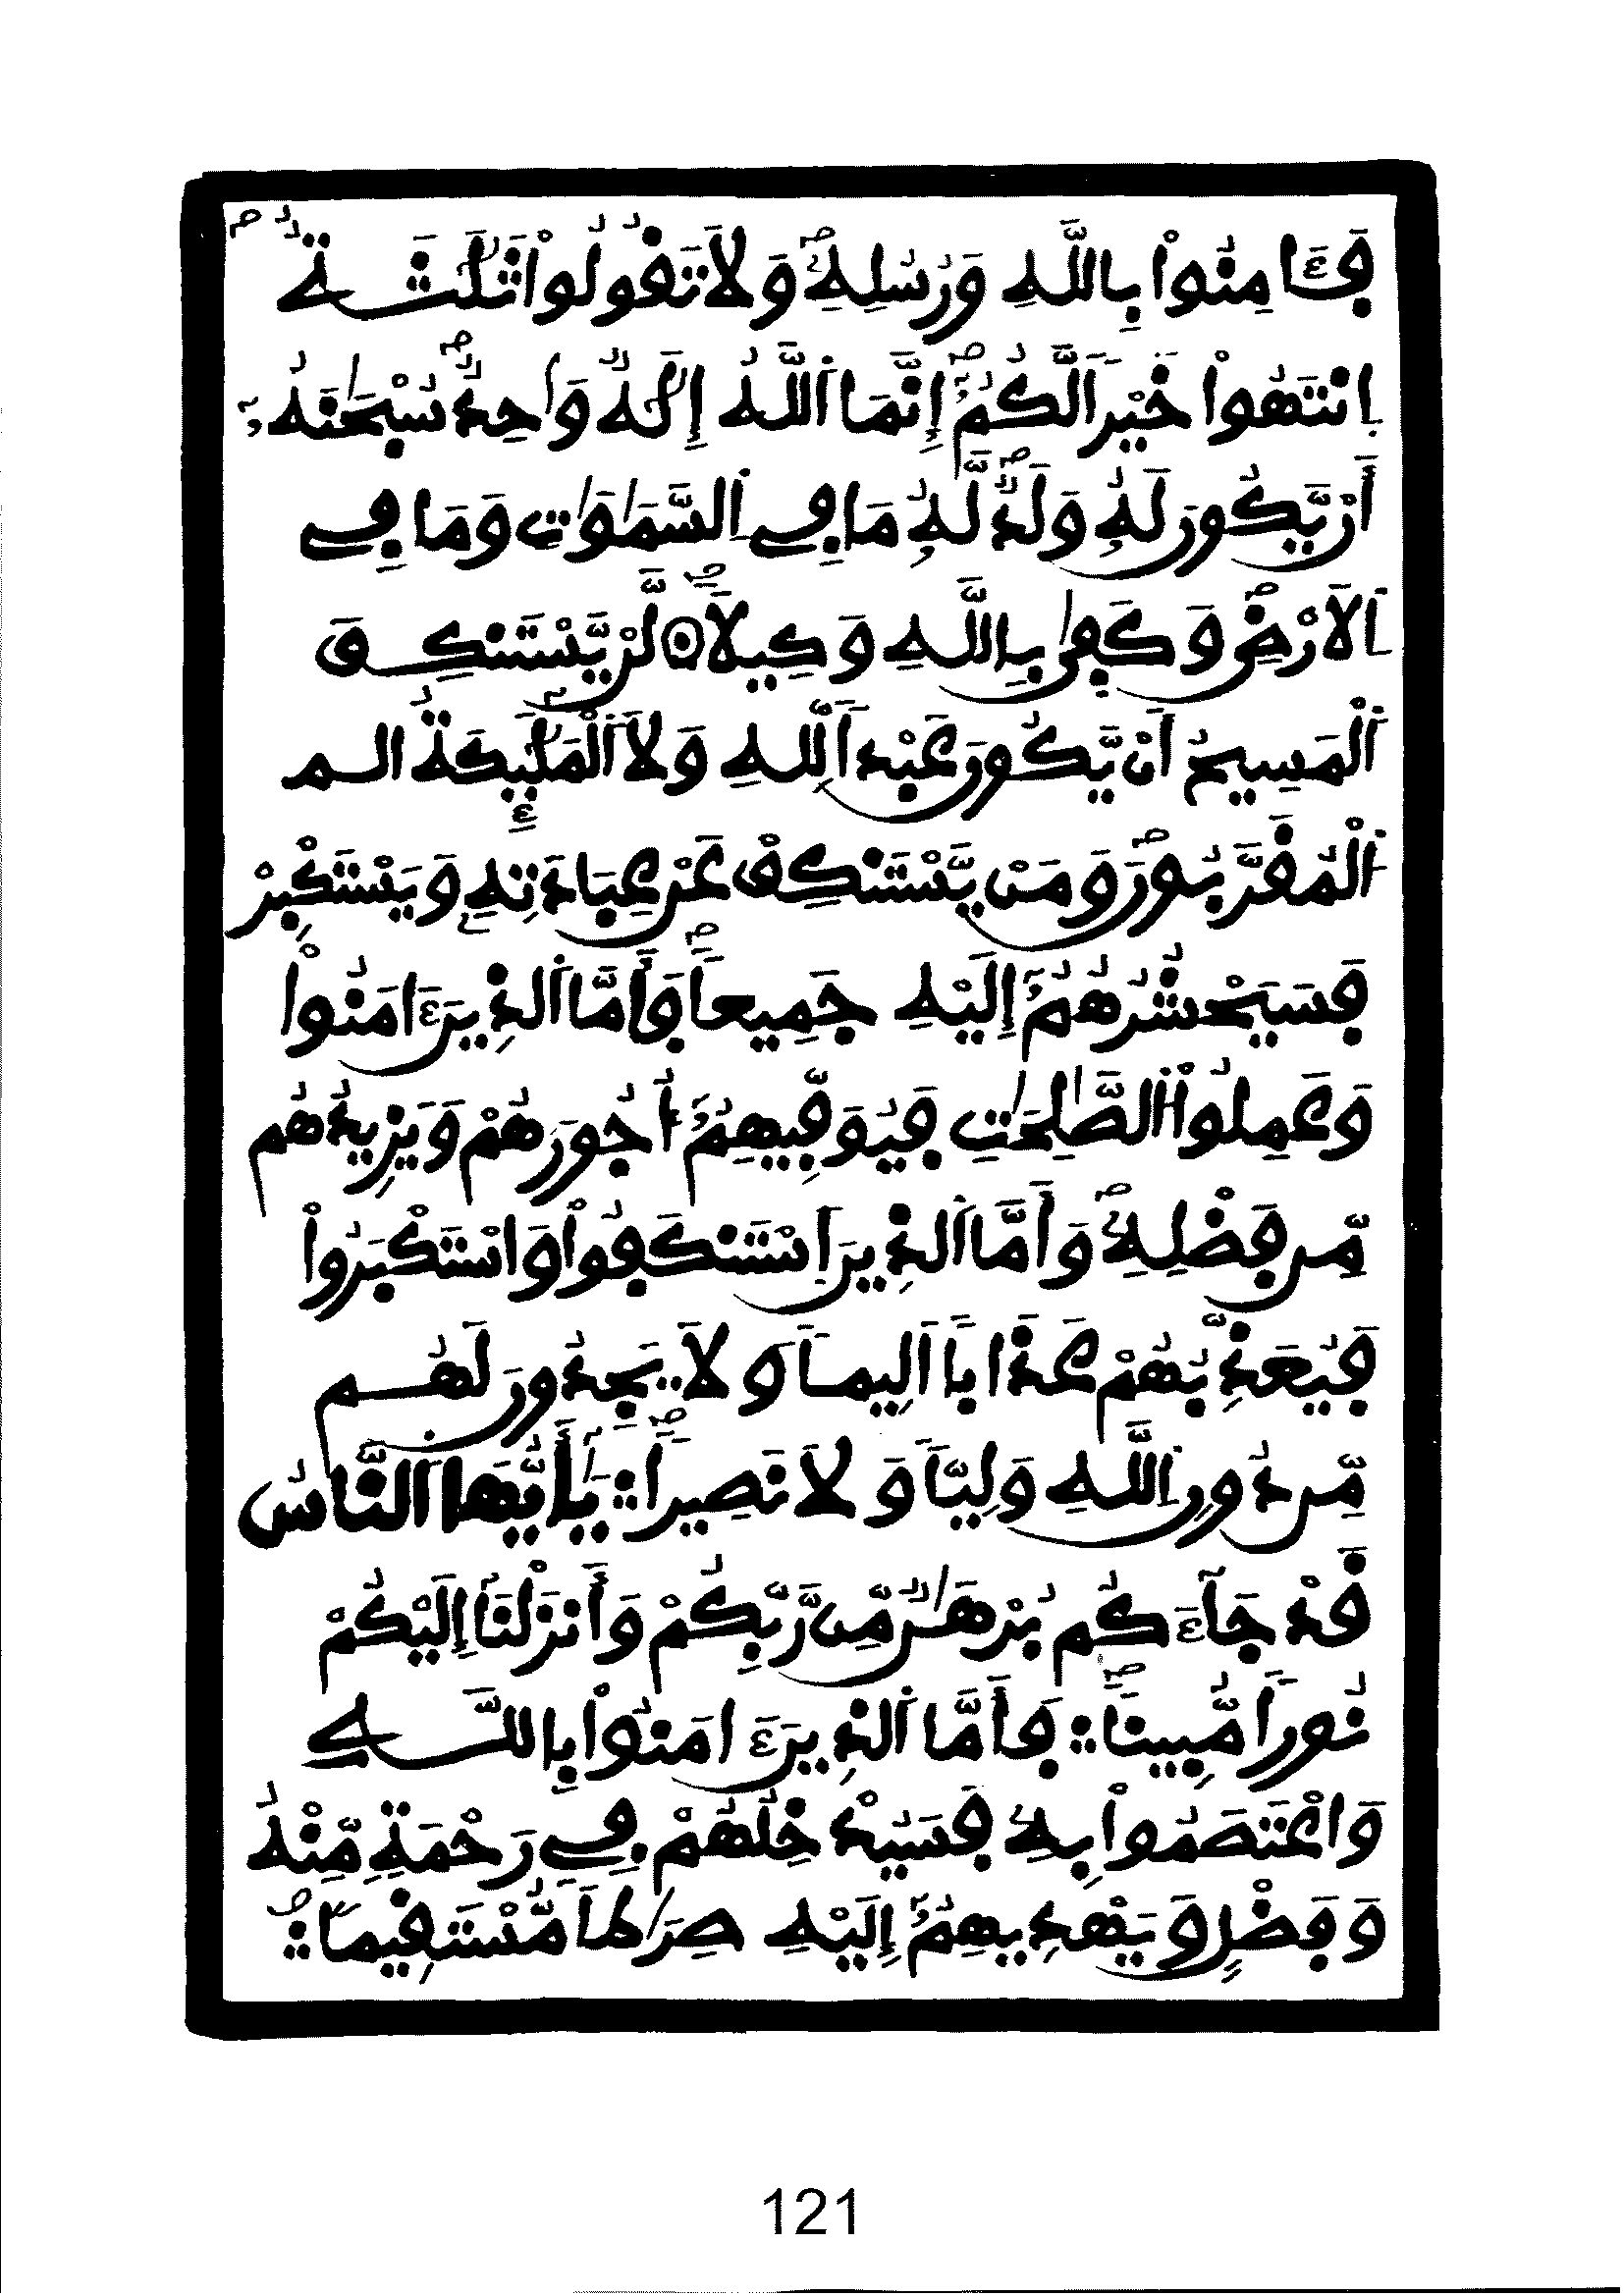 فَـَٔامِنُواْ بِاللَّهِ وَرُسُلِهِۦ وَلَا تَقُولُواْ ثَلَٰثَةٌ
اِنتَهُواْ خَيْراً لَّكُمُۥٓ إِنَّمَا اَللَّهُ إِلَٰهٌ وَٰحِدٌ سُبْحَٰنَهُۥٓ
أَنْ يَّكُونَ لَهُۥ وَلَدٌ لَّهُۥ مَا فِي اِلسَّمَٰوَٰتِ وَمَا فِي
اِلَارْضِ وَكَفَىٰ بِاللَّهِ وَكِيلاً لَّنْ يَّسْتَنكِفَ
اَلْمَسِيحُ أَنْ يَّكُونَ عَبْداً لِّلهِ وَلَا اَلْمَلَٰٓئِكَةُ الم
اُلْمُقَرَّبُونَ وَمَنْ يَّسْتَنكِفْ عَنْ عِبَادَتِهِۦ وَيَسْتَكْبِرْ
فَسَيَحْشُرُهُمُۥٓ إِلَيْهِ جَمِيعاً فَأَمَّا اَلذِينَ ءَامَنُواْ
وَعَمِلُواْ اُلصَّٰلِحَٰتِ فَيُوَفِّيهِمُۥٓ أُجُورَهُمْ وَيَزِيدُهُم
مِّن فَضْلِهِۦ وَأَمَّا اَلذِينَ اَسْتَنكَفُواْ وَاسْتَكْبَرُواْ
فَيُعَذِّبُهُمْ عَذَاباً اَلِيماً وَلَا يَجِدُونَ لَهُم
مِّن دُونِ اِللَّهِ وَلِيّاً وَلَا نَصِيراً يَٰٓأَيُّهَا اَلنَّاسُ
قَدْ جَآءَكُم بُرْهَٰنٌ مِّن رَّبِّكُمْ وَأَنزَلْنَآ إِلَيْكُمْ
نُوراً مُّبِيناً فَأَمَّا اَلذِينَ ءَامَنُواْ بِاللَّهِ
وَاعْتَصَمُواْ بِهِۦ فَسَيُدْخِلُهُمْ فِي رَحْمَةٍ مِّنْهُ
وَفَضْلٍ وَيَهْدِيهِمُۥٓ إِلَيْهِ صِرَٰطاً مُّسْتَقِيماً
121